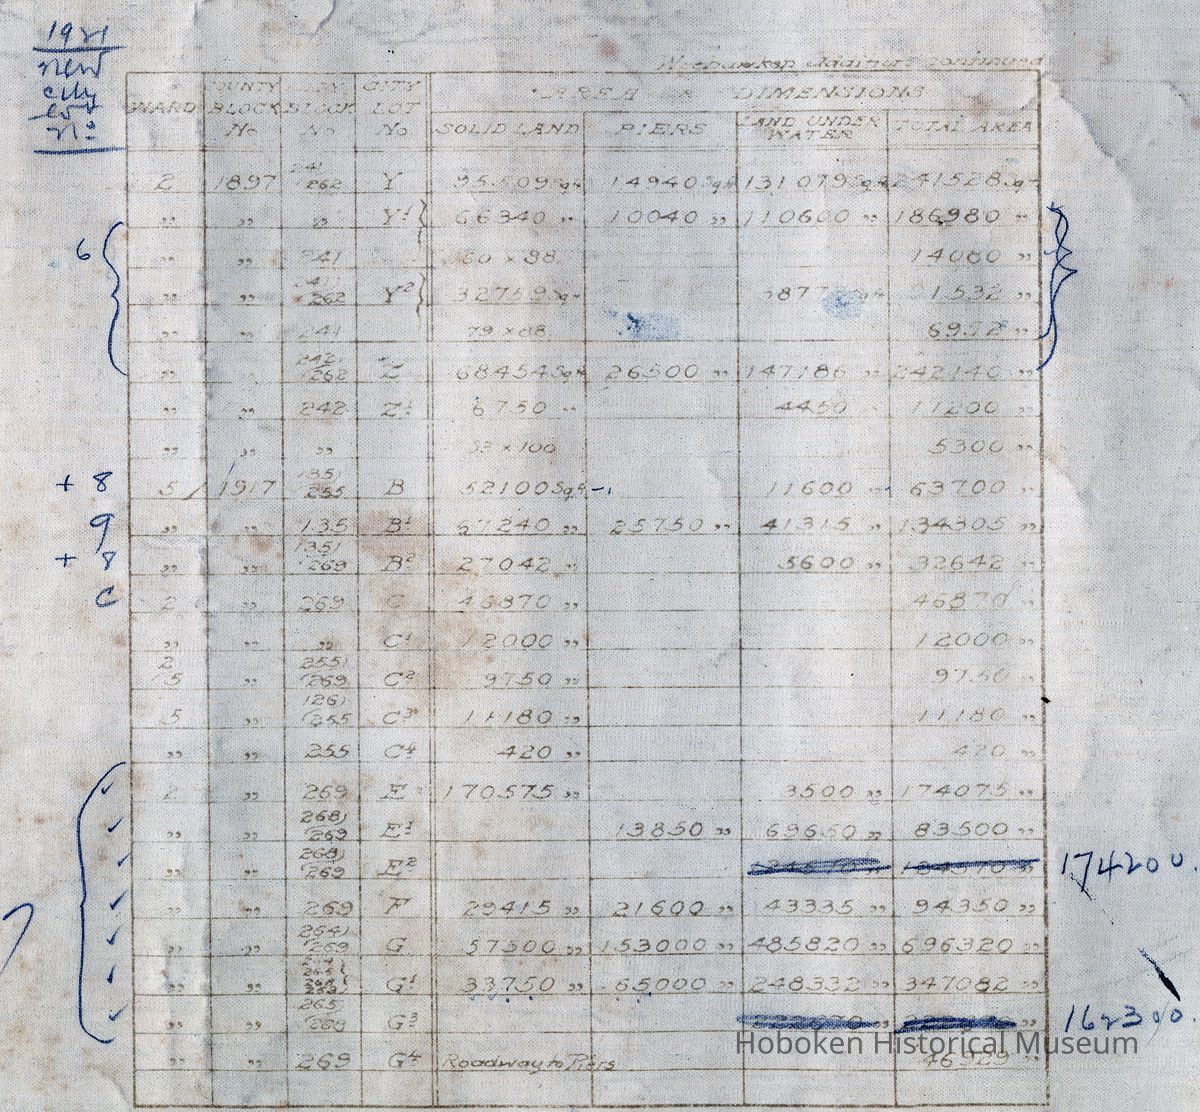 1921
new
city
lot
No
Weehawken Addition Continued
WARD COUNTY BLOCK No CITY BLOCK No CITY LOT No AREA OR DIMENSIONS
SOLID LAND PIERS LAND UNDER WATER TOTAL AREA
2 1897 241/262 Y 95509 sq ft 14940 sq ft 131079 sq ft 241528 sq ft
" " " Y1 66340 " 10040 " 110600 " 186980 "
6
" " 241 14080 "
" " 241/262 Y2 32759 sq ft
" " 241 79 x 88 6952 "
" " 242/262 Z 68454 sq ft 26500 " 147186 " 242140 "
" " 242 Z1 6750 " 4450 11200 "
" " " 53 x 100 5300 "
+ 8 5 1917 135/255 B 52100 sq ft 11600 " 63700 "
9 " " 135 B1 67240 " 25750 " 41315 " 134305 "
+ 8 " " 135/269 B2 27042 " 5600 " 32642 "
C 2 " 269 C 46870 " 46870 "
" " " C1 12000 " 12000 "
2/5 " 255/269 C2 9750 " 9750 "
5 " 126/255 C3 11180 " 11180 "
" " 255 C4 420 " 420 "
2 " 269 E 170575 " 3500 " 174075 "
" " 268/269 E1 13850 " 69650 " 83500 "
" " 268/269 E2 174200.
" " 269 F 29415 " 21600 " 43335 " 94350 "
7 " " 264/269 G 57500 " 153000 " 485820 " 696320 "
" " G1 33750 " 65000 " 248332 " 347082 "
" " 265/269 G3 162390.
" " 269 G4 Roadway to Piers 46929 "
Hoboken Historical Museum